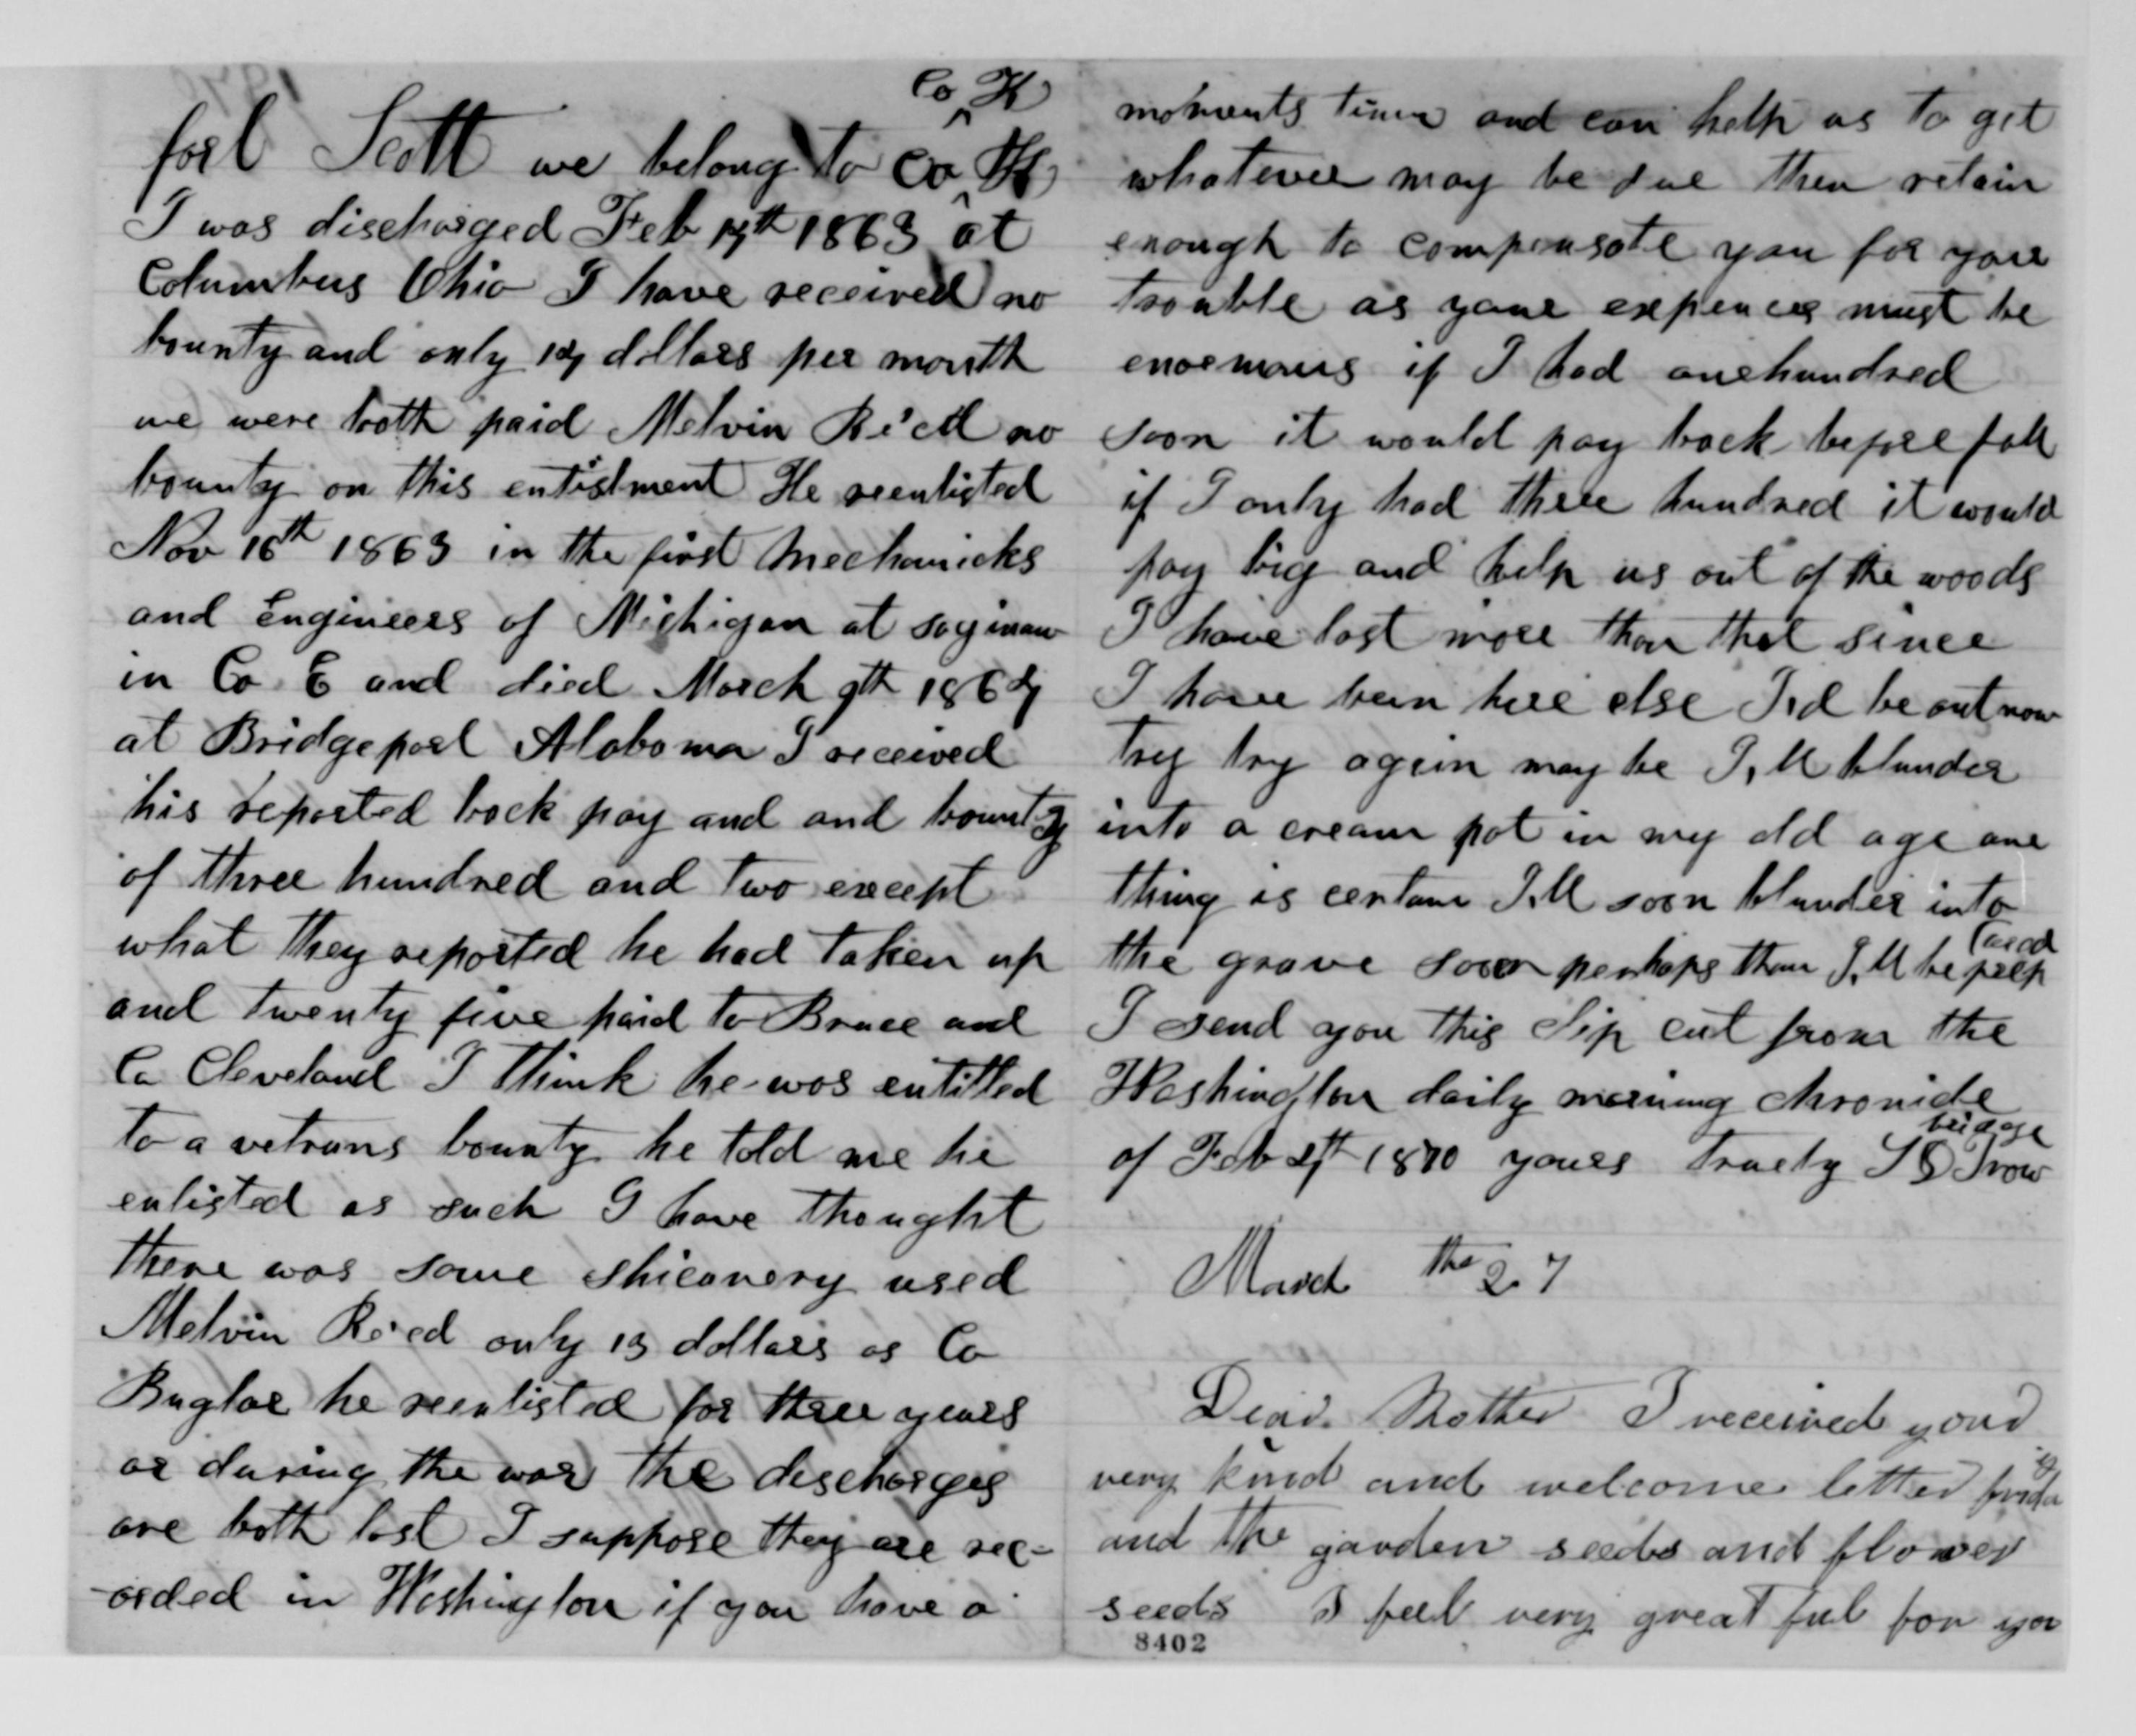 Co K
fort Scott we belong to Co K
I was discharged Feb 14th 1863 at
Columbus Ohio I have received no
bounty and only 14 dollars per month
we were both paid Melvin Re'cd no
bounty on this entistment He reenlisted
Nov 16th 1863 in the first Mechanicks
and Engineers of Michigan at saginaw
in Co E and died March 9th 1864
at Bridgeport Alaboma I received
his reported back pay and and bounty
of three hundred and two except
what they reported he had taken up
and twenty five paid to Brace and
Co Cleveland I think he was entitled
to a vetrans bounty he told me he
enlisted as such I have thought
there was some shicanery used
Melvin Re'cd only 13 dollars as Co
Buglar he reenlisted for three years
or during the war The descharges
are both lost I suppose they are rec-
-orded in Washington if you have a
moments time and can help us to get
whatever may be due then retain
enough to compensate you for your
trouble as your expences must be
enormous if I had onehundred
soon it would pay back before fall
if I only had three hundred it would
pay big and help us out of the woods
I have lost more than that since
I have been here else I,d be out now
try try again may be I,ll blunder
into a cream pot in my old age one
thing is certain I,ll soon blunder into
the grave soon perhaps than I,ll be prep
(ared
I send you this slip cut from the
Washington daily morning chronicle
of Feb 4th 1870 yours truely S S Trow
bridge
March the 27
Dear Mother I received your
very kind and welcome letter frida
y
and the garden seeds and flower
seeds I feel very great ful for you
8402